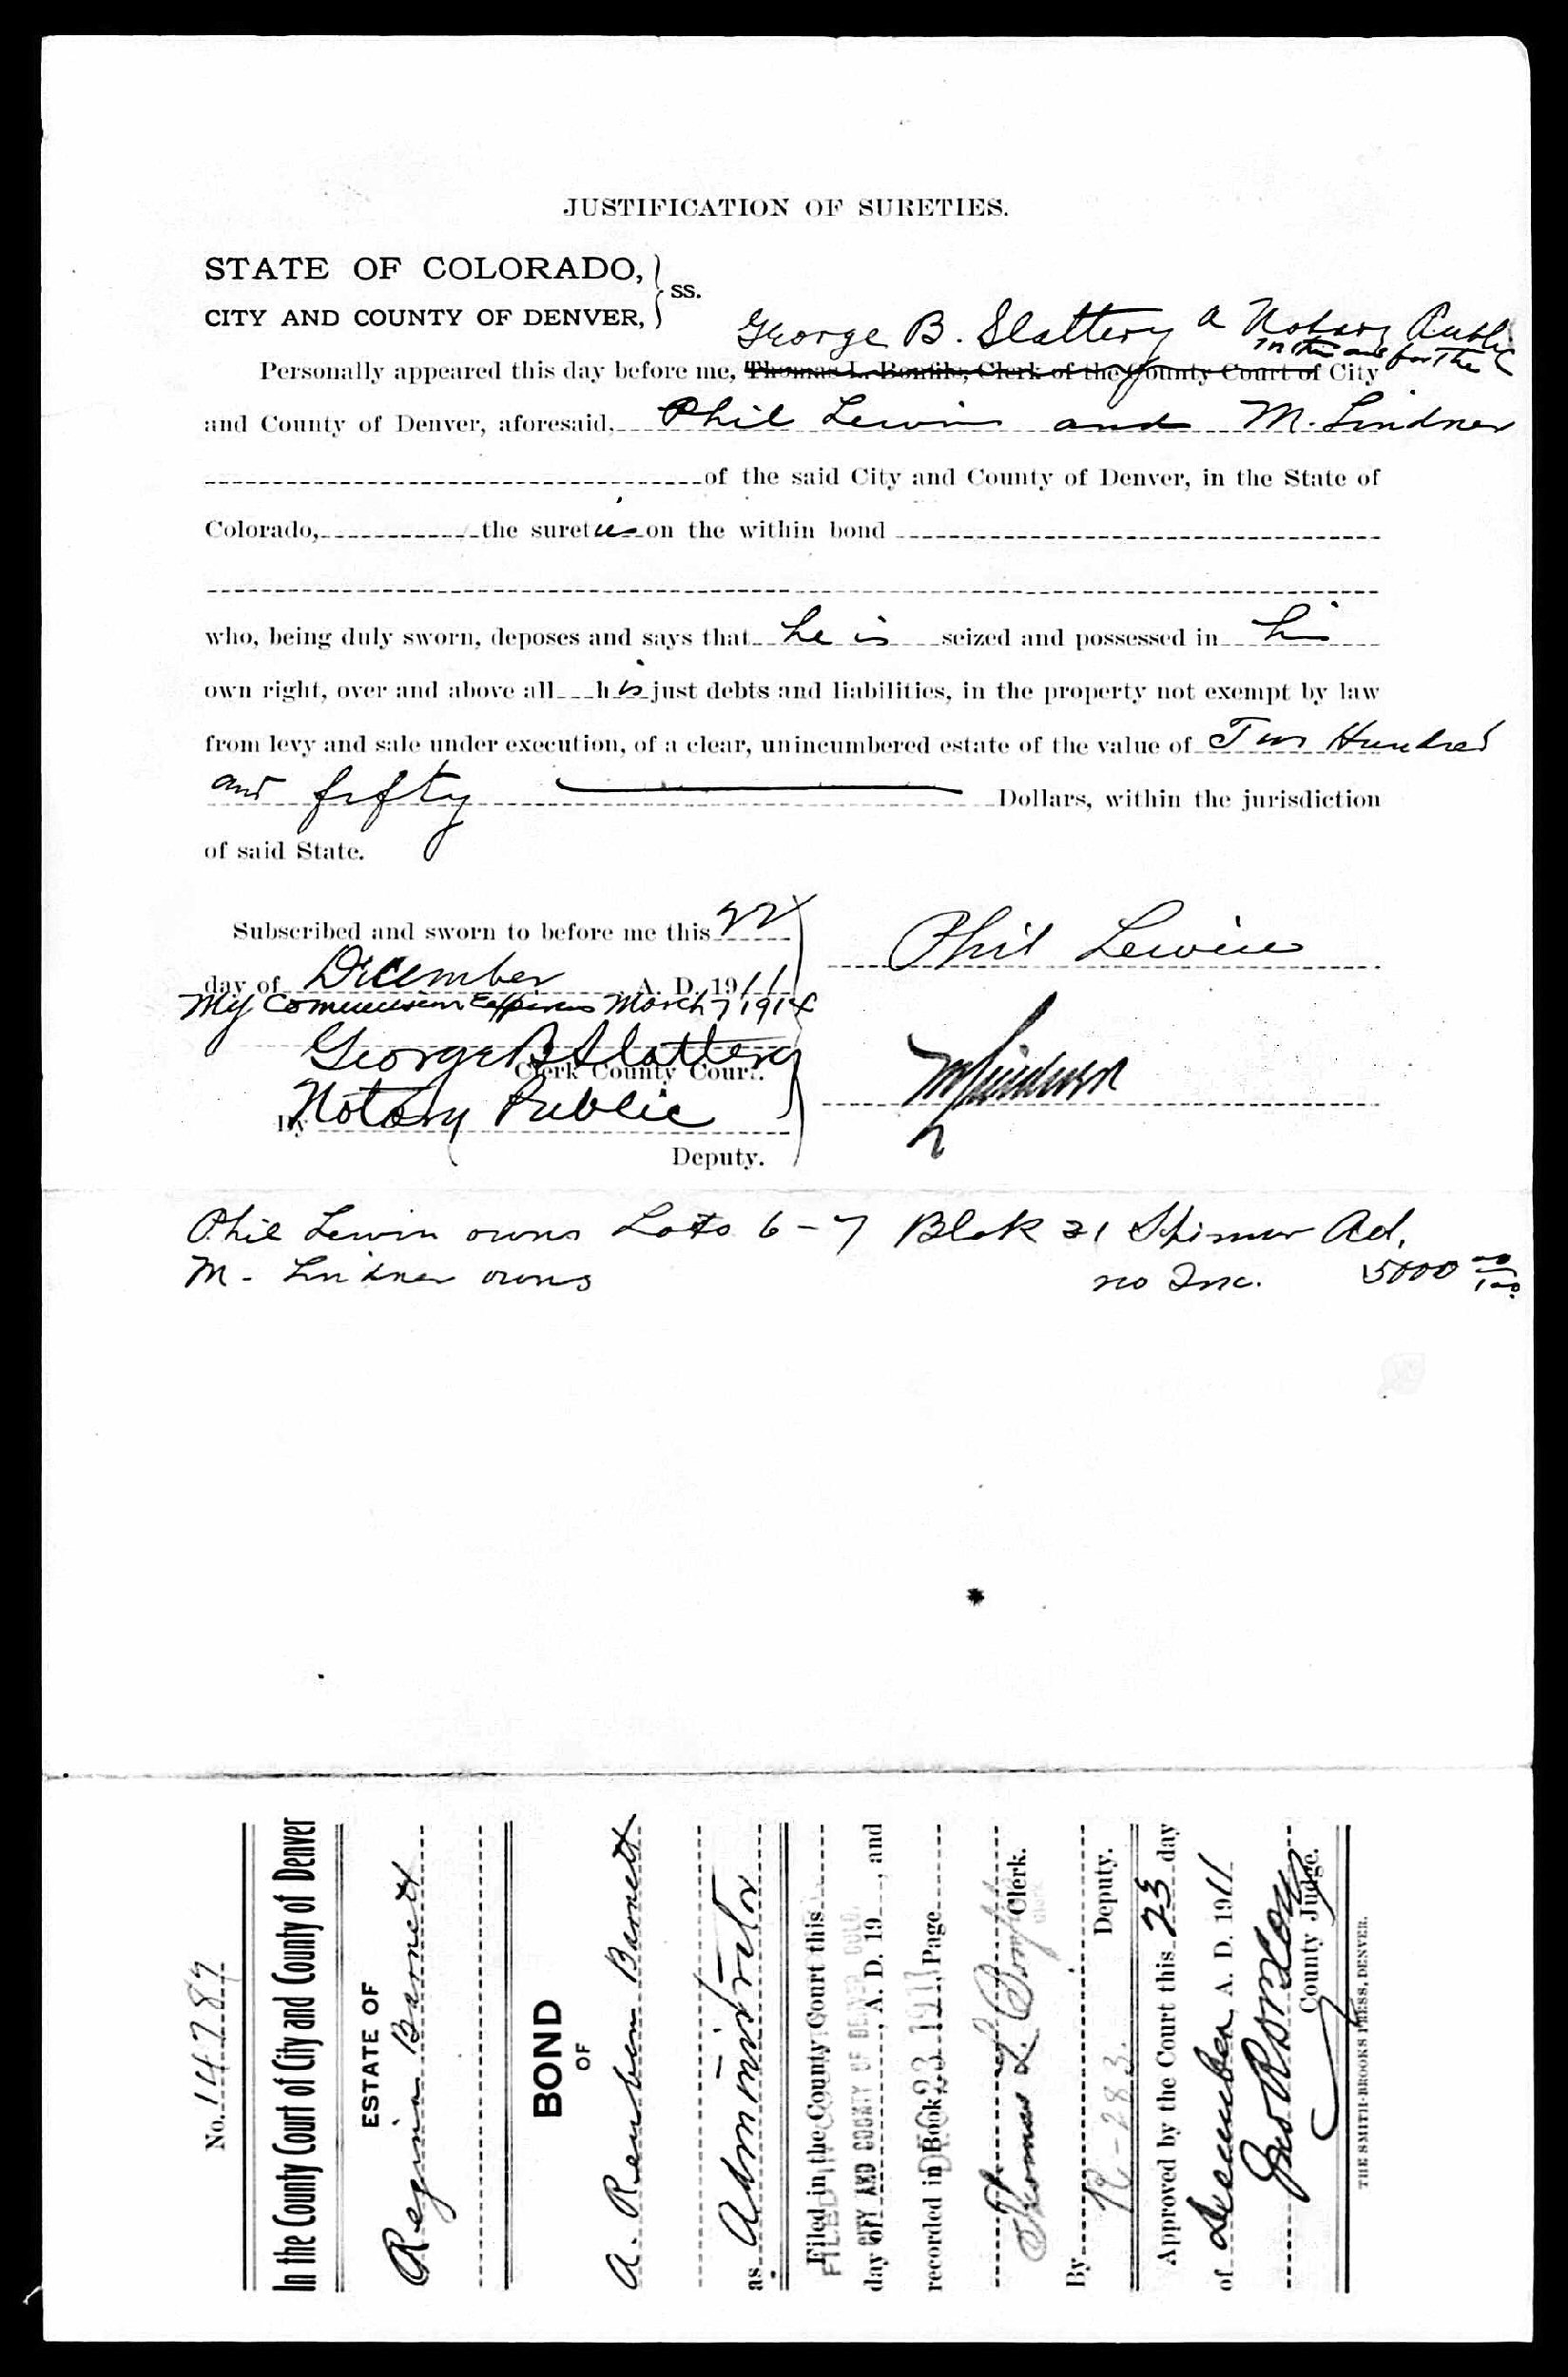 JUSTIFICATION OF SURETIES.
STATE OF COLORADO,
ss.
CITY AND COUNTY OF DENVER,
George B. Slattery a Notary Public
in and for the
Personally appeared this day before me, Thomas L. Bonfils, Clerk of the County Court of City
and County of Denver, aforesaid, Phil Lewin and M. Lindner
of the said City and County of Denver, in the State of
Colorado, the sureties on the within bond
who, being duly sworn, deposes and says that he is seized and possessed in his
own right, over and above all his just debts and liabilities, in the property not exempt by law
from levy and sale under execution, of a clear, unincumbered estate of the value of Two Hundred
and fifty Dollars, within the jurisdiction
of said State.
Subscribed and sworn to before me this 22
day of December A. D. 1911
My Commission Expires March 7 1914
George B Slattery
Clerk County Court.
Notary Public
By
Deputy.
Phil Lewin
M Lindner
Phil Lewin owns Lots 6-7 Blok 21 Ad.
M. Lindner owns no Inc. 5000 00/100
No. 14789
In the County Court of City and County of Denver
ESTATE OF
Regina Barnett
BOND
OF
A. Reuben Barnett
as Administrator
Filed in the County Court this
FILED IN COUNTY COURT
day of , A. D. 19 , and
CITY AND COUNTY OF DENVER COLO.
recorded in Book Page
DEC 23 1911
Thomas L Bonfils
Clerk.
By Deputy.
Approved by the Court this 23 day
of December, A. D. 1911
County Judge.
THE SMITH-BROOKS PRESS, DENVER.